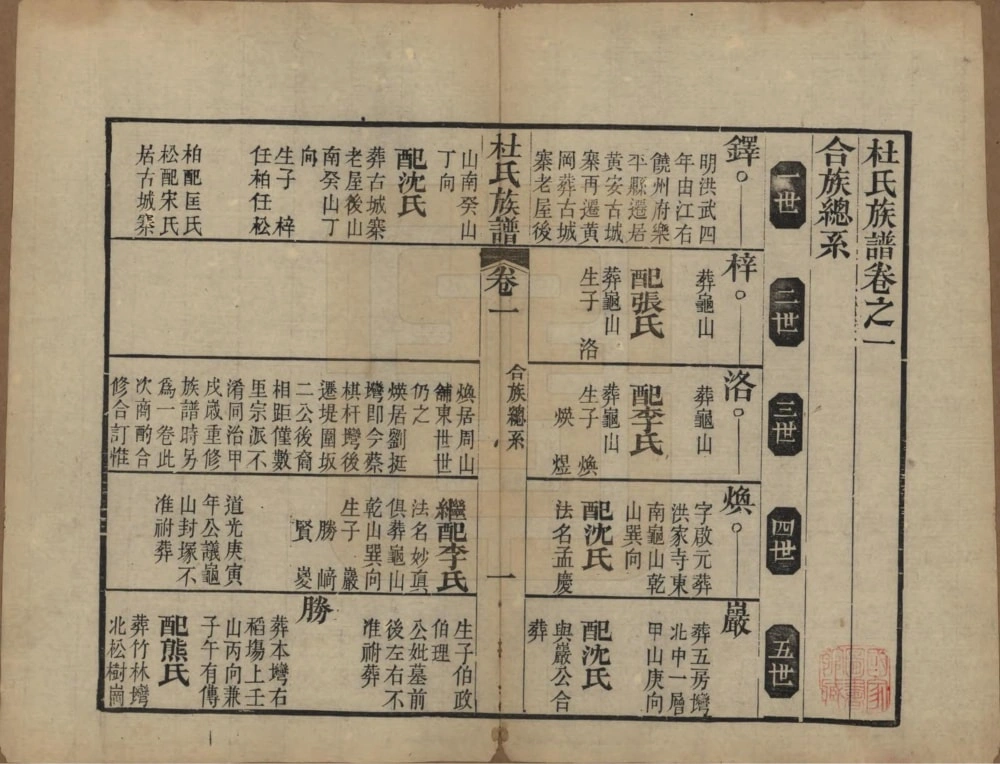 杜氏族譜卷之一
合族總系
一世
二世
三世
四世
五世
鐸
明洪武四
年由江右
饒州府樂
平縣遷居
黃安古城
寨再遷黃
岡葬古城
寨老屋後
山南癸山
丁向
配沈氏
葬古城寨
老屋後山
南癸山丁
向
生子 梓
任柏任松
柏配匡氏
松配宋氏
居古城寨
梓
葬龜山
配張氏
葬龜山
生子 洛
洛
葬龜山
配李氏
葬龜山
生子 煥
煐 煜
煥居周山
舖東世世
仍之
煐居劉挺
塆即今蔡
棋杆塆後
遷堤圍坂
二公後裔
相距僅數
里宗派不
淆同治甲
戌歲重修
族譜時另
為一卷此
次商酌合
修合訂惟
煥
字啟元葬
洪家寺東
南龜山乾
山巽向
配沈氏
法名孟慶
繼配李氏
法名妙真
俱葬龜山
乾山巽向
生子 巖
勝 﨑
賢 嵏
道光庚寅
年公議龜
山封塚不
准祔葬
巖
葬五房塆
北中一層
甲山庚向
配沈氏
與巖公合
葬
生子伯政
伯理
公妣墓前
後左右不
准祔葬
勝
葬本塆右
稻場上壬
山丙向兼
子午有傳
配熊氏
葬竹林塆
北松樹崗
杜氏族譜
卷一
合族總系
一